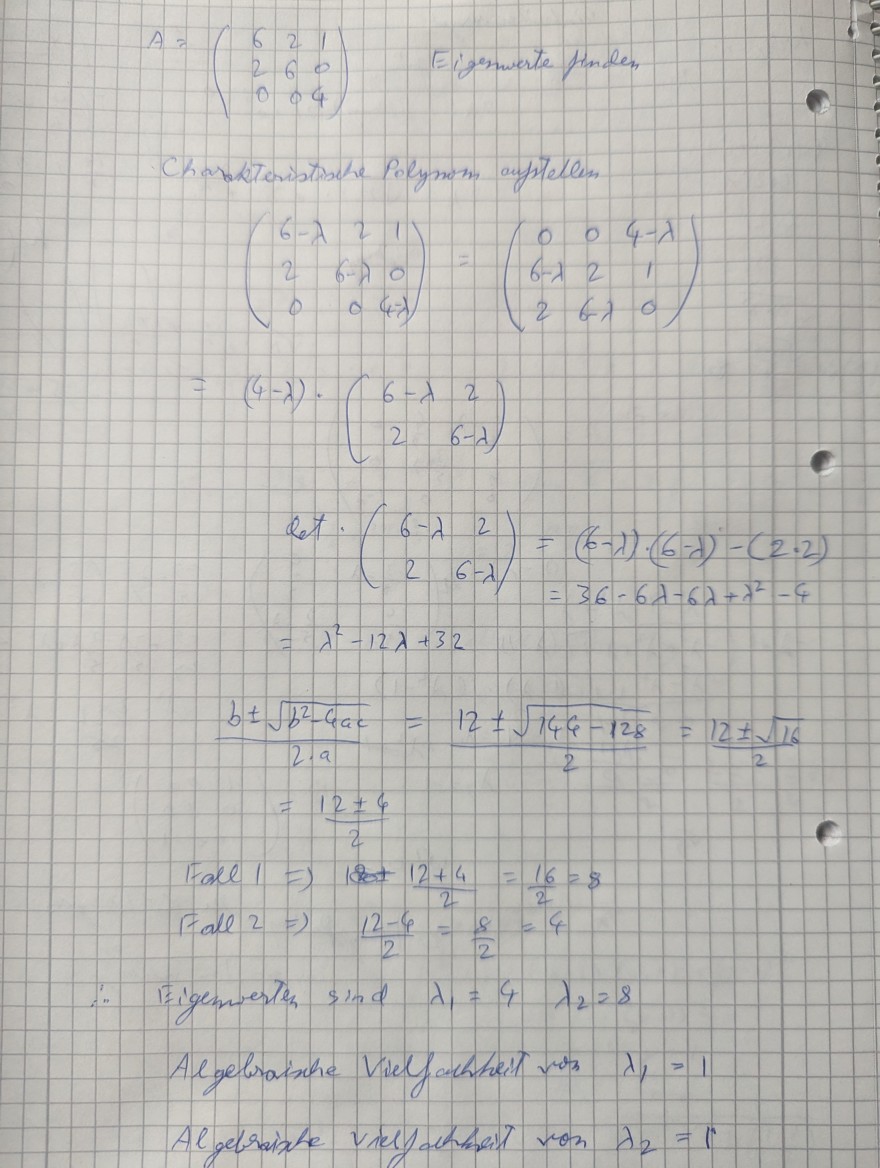 A = ( 6 2 1 Eigenwerte finden
2 6 0
0 0 4 )
Charakteristische Polynom aufstellen
( 6-λ 2 1 = ( 0 0 4-λ
2 6-λ 0 6-λ 2 1
0 0 4-λ ) 2 6-λ 0 )
= (4-λ) · ( 6-λ 2
2 6-λ )
det · ( 6-λ 2 = (6-λ)·(6-λ) - (2·2)
2 6-λ ) = 36-6λ-6λ+λ² -4
= λ² -12λ +32
b ± √b²-4ac / 2·a = 12 ± √144-128 / 2 = 12 ± √16 / 2
= 12 ± 4 / 2
Fall 1 => 12+4 / 2 = 16 / 2 = 8
Fall 2 => 12-4 / 2 = 8 / 2 = 4
∴ Eigenwerten sind λ₁ = 4 λ₂ = 8
Algebraische Vielfachheit von λ₁ = 1
Algebraische Vielfachheit von λ₂ = 1